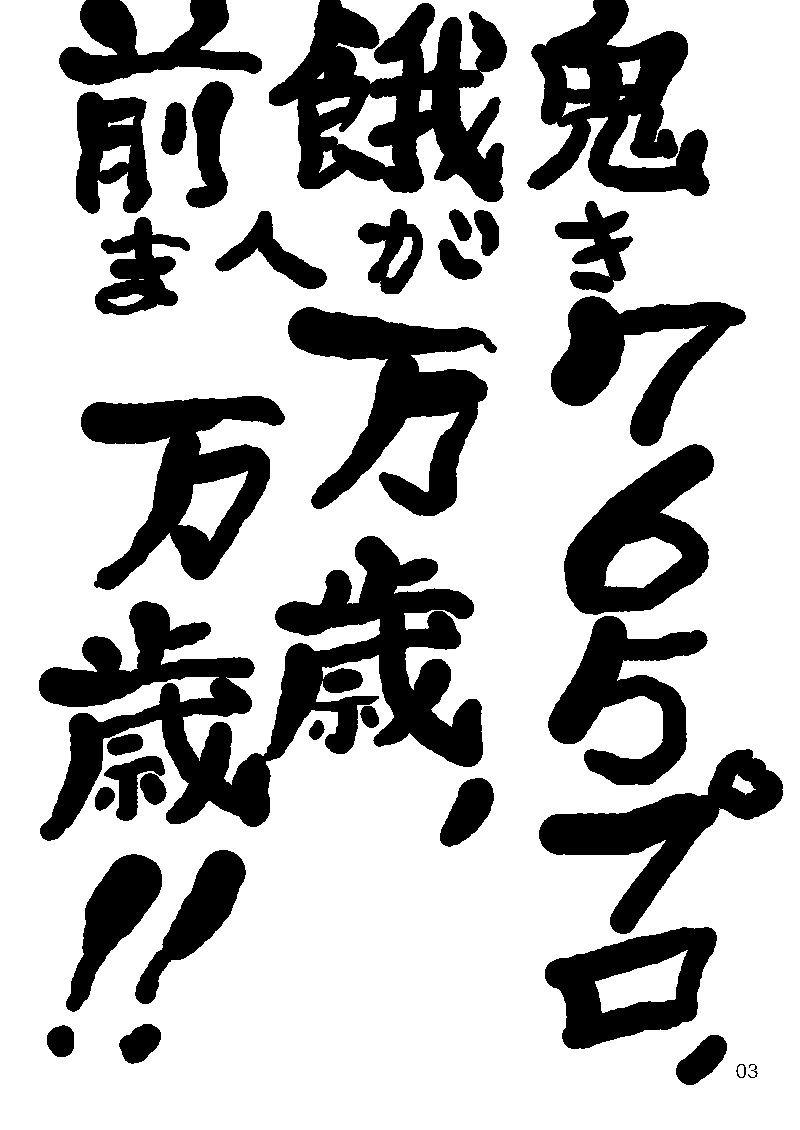 前餓鬼
まへがき
765プロ,
万歳,
万歳!!
03